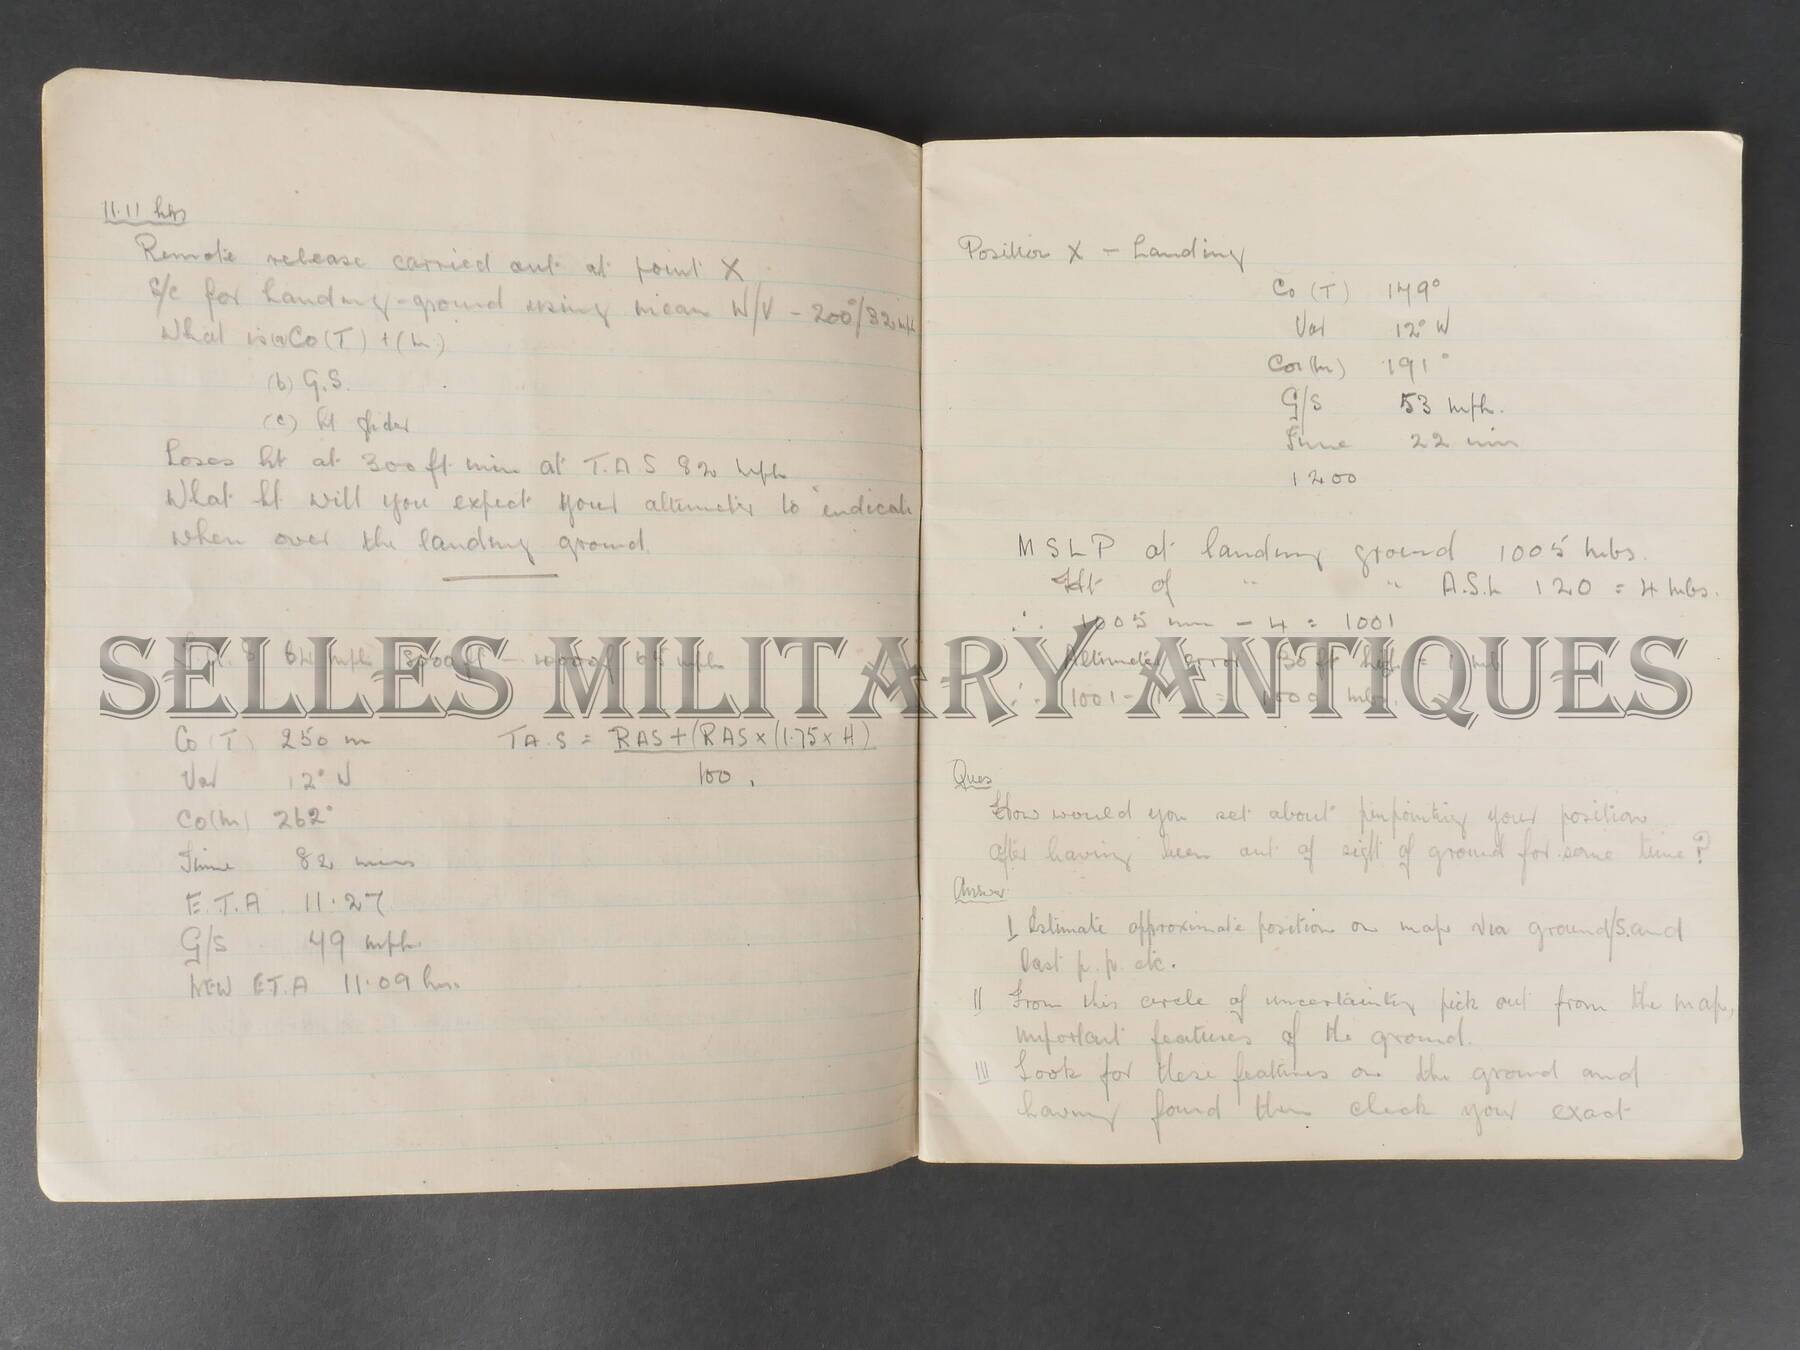 11.11 hrs
Remote release carried out at point X
S/C for landing-ground using mean W/V - 200°/32 mph
What is (a) Co (T) + (m)
(b) G.S.
(c) ht glider
Loses ht at 300 ft min at T.A.S 82 mph
What ht will you expect your altimeter to indicate
when over the landing ground.
64 mph 65 mph
Co (T) 250 m
TA.S = RAS + (RAS x (1.75 x H)
100.
Var 12° W
Co(m) 262°
Time 82 mins
E.T.A 11.27
G/S 49 mph.
NEW E.T.A 11.09 hrs.
Position X - Landing
Co (T) 179°
Var 12° W
Co (m) 191°
G/S 53 mph.
Time 22 min
1200
M S L P at landing ground 1005 mbs.
Ht of " " A.S.L 120 = 4 mbs.
∴ 1005 - 4 = 1001
Altimeter error 30 ft high = 1 mb
∴ 1001 - 1 = 1000 mbs.
SELLES MILITARY ANTIQUES
Ques
How would you set about pinpointing your position
after having been out of sight of ground for some time?
Answer
I Estimate approximate position on map via ground/S. and
last p.p. etc.
II From this circle of uncertainty pick out from the map,
important features of the ground.
III Look for these features on the ground and
having found them check your exact